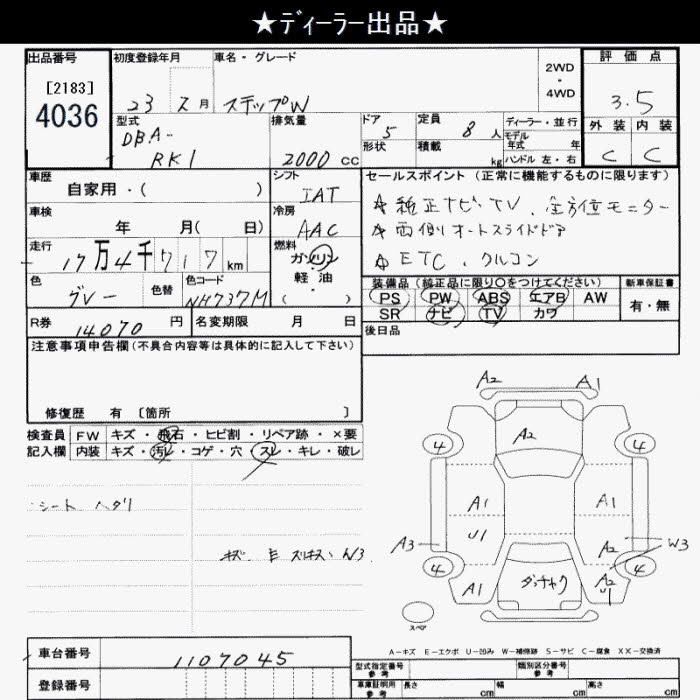 ★ディーラー出品★
出品番号 初度登録年月 車名・グレード 2WD・4WD 評価点
[2183]
4036
23 7月 ステップW 3.5
型式 DBA-RK1 排気量 2000cc ドア 5 定員 8人 ディーラー・並行 外装 内装
形状 積載 kg モデル年式 年 ハンドル 左・右 C C
車歴 自家用・( ) シフト IAT セールスポイント (正常に機能するものに限ります)
車検 年 月( 日) 冷房 AAC ☆ 純正ナビTV、全方位モニター
☆ 両側オートスライドドア
走行 17万4千717km 燃料 ガソリン・軽油・( ) ☆ ETC、クルコン
色 グレー 色替 色コード NH737M 装備品 (純正品に限り○をつけてください) 新車保証書
PS PW ABS エアB AW 有・無
SR ナビ TV カワ
R券 14070円 名変期限 月 日 後日品
注意事項申告欄(不具合内容等は具体的に記入して下さい)
修復歴 有 〔箇所 〕
検査員 FW キズ・飛石・ヒビ割・リペア跡・×要
記入欄 内装 キズ・汚レ・コゲ・穴・スレ・キレ・破レ
シート ヘタリ
A2 A1
A2
4 4
A1 A1
U1
A3 A2 W3
4 4
A1 A2
U1
スペア
A-キズ E-エクボ U-凹み W-補修跡 S-サビ C-腐食 XX-交換済
車台番号 1107045
登録番号 型式指定番号 参考 類別区分番号 参考
車庫証明用 参考 長さ cm 幅 cm 高さ cm